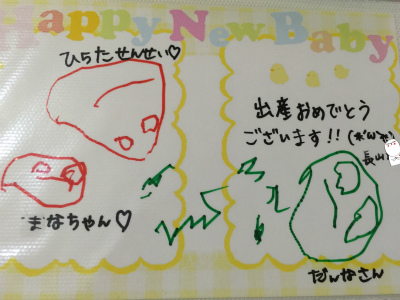 Happy New Baby
ひらたせんせい♡
出産おめでとう
ございます!!
長山
まなちゃん♡
だんなさん